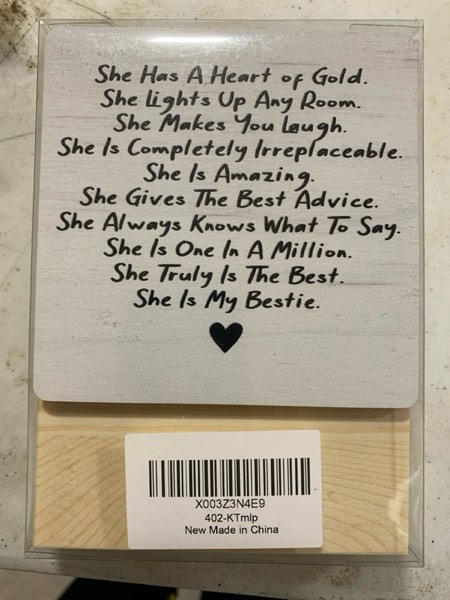 She Has A Heart of Gold.
She Lights Up Any Room.
She Makes You Laugh.
She Is Completely Irreplaceable.
She Is Amazing.
She Gives The Best Advice.
She Always Knows What To Say.
She Is One In A Million.
She Truly Is The Best.
She Is My Bestie.
X003Z3N4E9
402-KTmlp
New Made in China